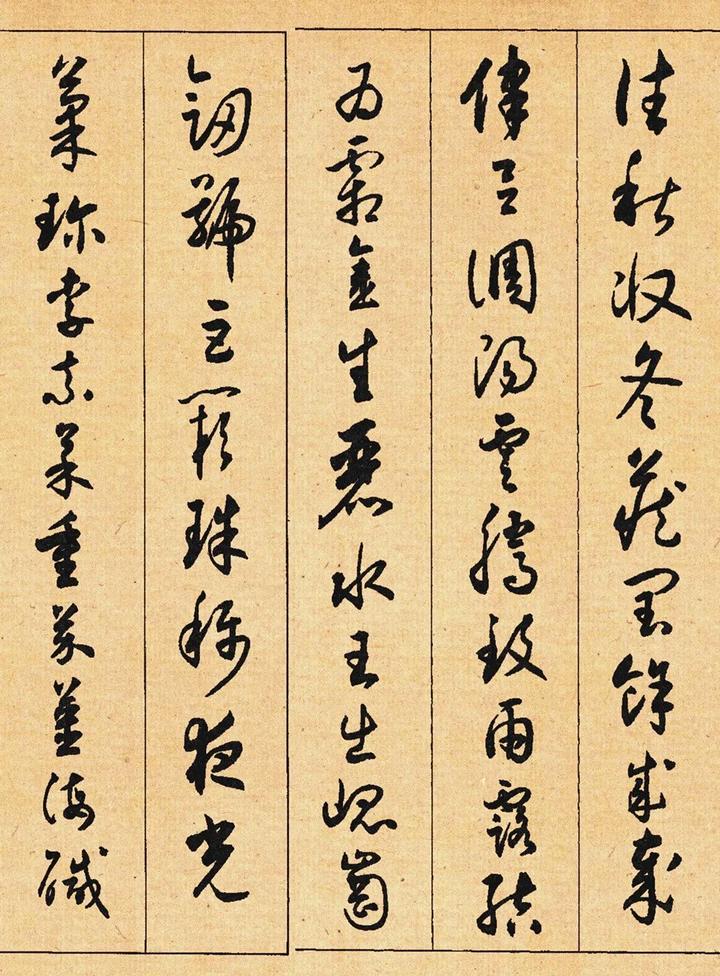 往秋收冬藏閏餘成歲
律呂調陽雲騰致雨露結
為霜金生麗水玉出崐崗
劍號巨闕珠稱夜光
菓珍李柰菜重芥薑海鹹